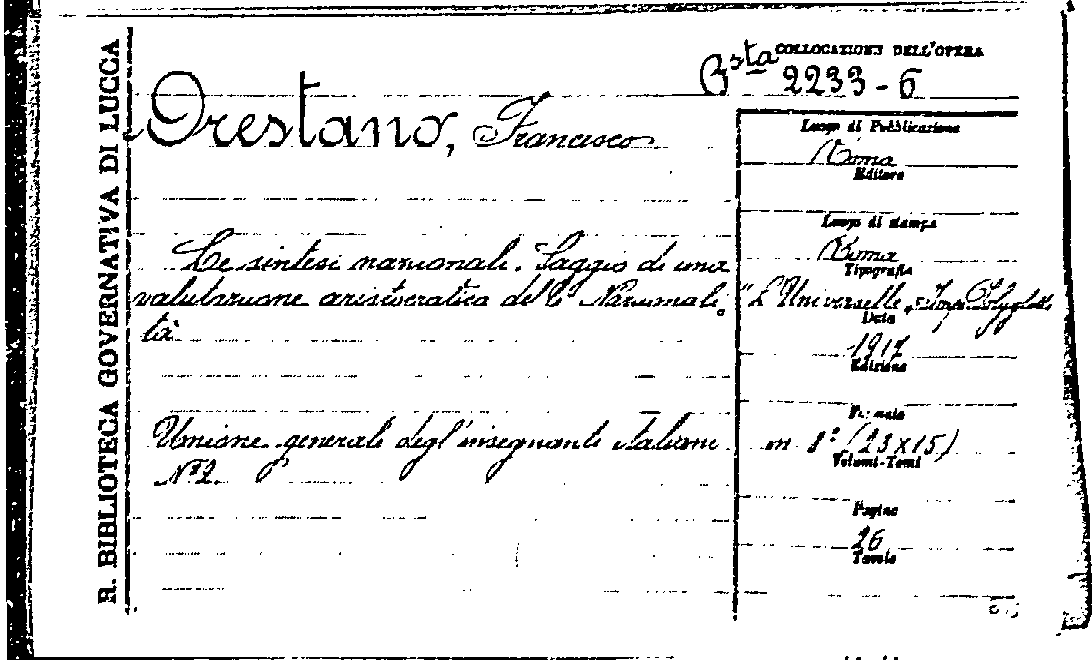 R. BIBLIOTECA GOVERNATIVA DI LUCCA
COLLOCAZIONE DELL'OPERA
Bsta 2233-6
Orestano, Francesco
Le sintesi nazionali. Saggio di una
valutazione aristocratica della Nazionali
tà
Unione generale degl'insegnanti italiani
N° 2.
Luogo di Pubblicazione
Roma
Editore
Luogo di stampa
Roma
Tipografia
"L'Universelle"
Data
1917
Edizione
Formato
in 8° (23x15)
Volumi-Tomi
Pagine
26
Tavole